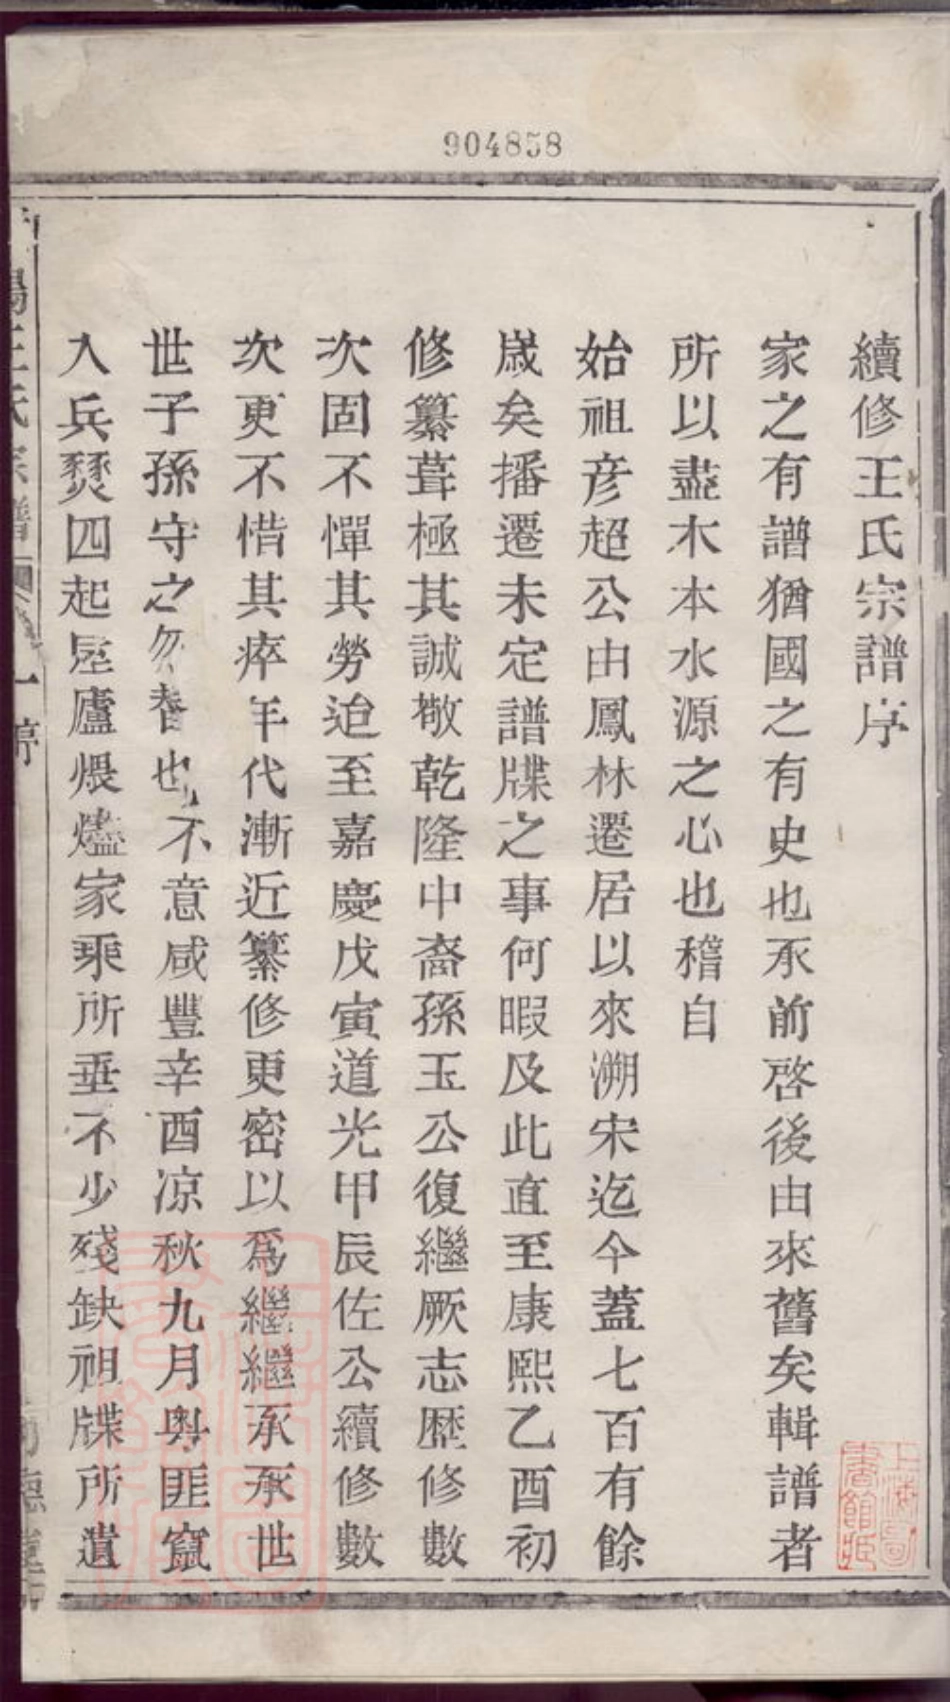 904858
續修王氏宗譜序
家之有譜猶國之有史也承前啓後由來舊矣輯譜者
所以盡木本水源之心也稽自
始祖彦超公由鳳林遷居以來溯宋迄今蓋七百有餘
歲矣播遷未定譜牒之事何暇及此直至康熙乙酉初
修纂葺極其誠敬乾隆中裔孫玉公復繼厥志歴修數
次固不憚其勞迨至嘉慶戊寅道光甲辰佐公續修數
次更不惜其瘁年代漸近纂修更密以爲繼繼承承世
世子孫守之勿替也不意咸豐辛酉凉秋九月粤匪竄
入兵燹四起廬煨燼家乘所垂不少殘缺祖牒所遺
陽王氏宗譜
一
上海圖書館藏